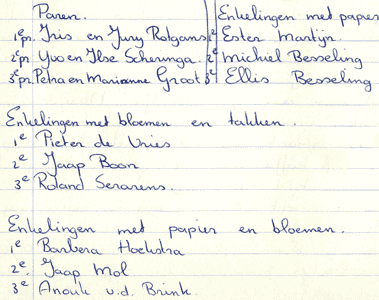 Paren.
1e pr. Iris en Jury Rotgans
2e pr. Yvo en Ilse Scheringa.
3e pr. Petra en Marianne Groot
Enkelingen met papier
1e Ester Martijn.
2e Michiel Besseling
3e Ellis Besseling
Enkelingen met bloemen en takken.
1e Pieter de Vries
2e Jaap Boon
3e Roland Serarens.
Enkelingen met papier en bloemen.
1e Barbera Hoekstra
2e Jaap Mol
3e Anouk v.d. Brink.